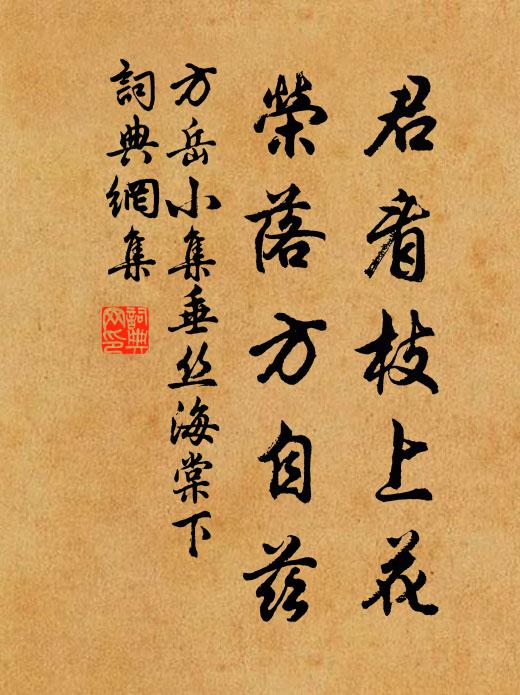 君看枝上花
榮落方自茲
方岳小集垂丝海棠下
詞典網集
詞典網印